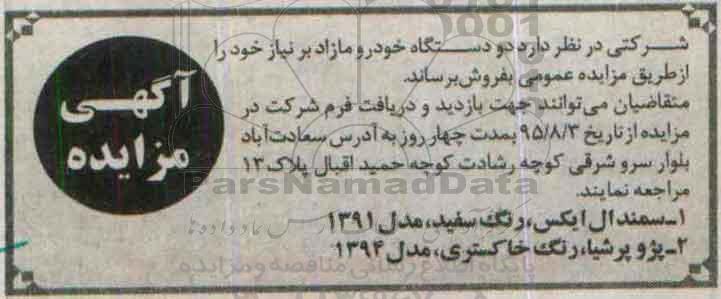 آگهی
مزایده
شرکتی در نظر دارد دو دستگاه خودرو مازاد بر نیاز خود را
از طریق مزایده عمومی بفروش برساند.
متقاضیان می‌توانند جهت بازدید و دریافت فرم شرکت در
مزایده از تاریخ ۹۵/۸/۳ بمدت چهار روز به آدرس سعادت آباد
بلوار سرو شرقی کوچه رشادت کوچه حمید اقبال پلاک ۱۳
مراجعه نمایند.
۱ـ سمند ال ایکس، رنگ سفید، مدل ۱۳۹۱
۲ـ پژو پرشیا، رنگ خاکستری، مدل ۱۳۹۴
ParsNamadData
پایگاه اطلاع رسانی مناقصه و مزایده